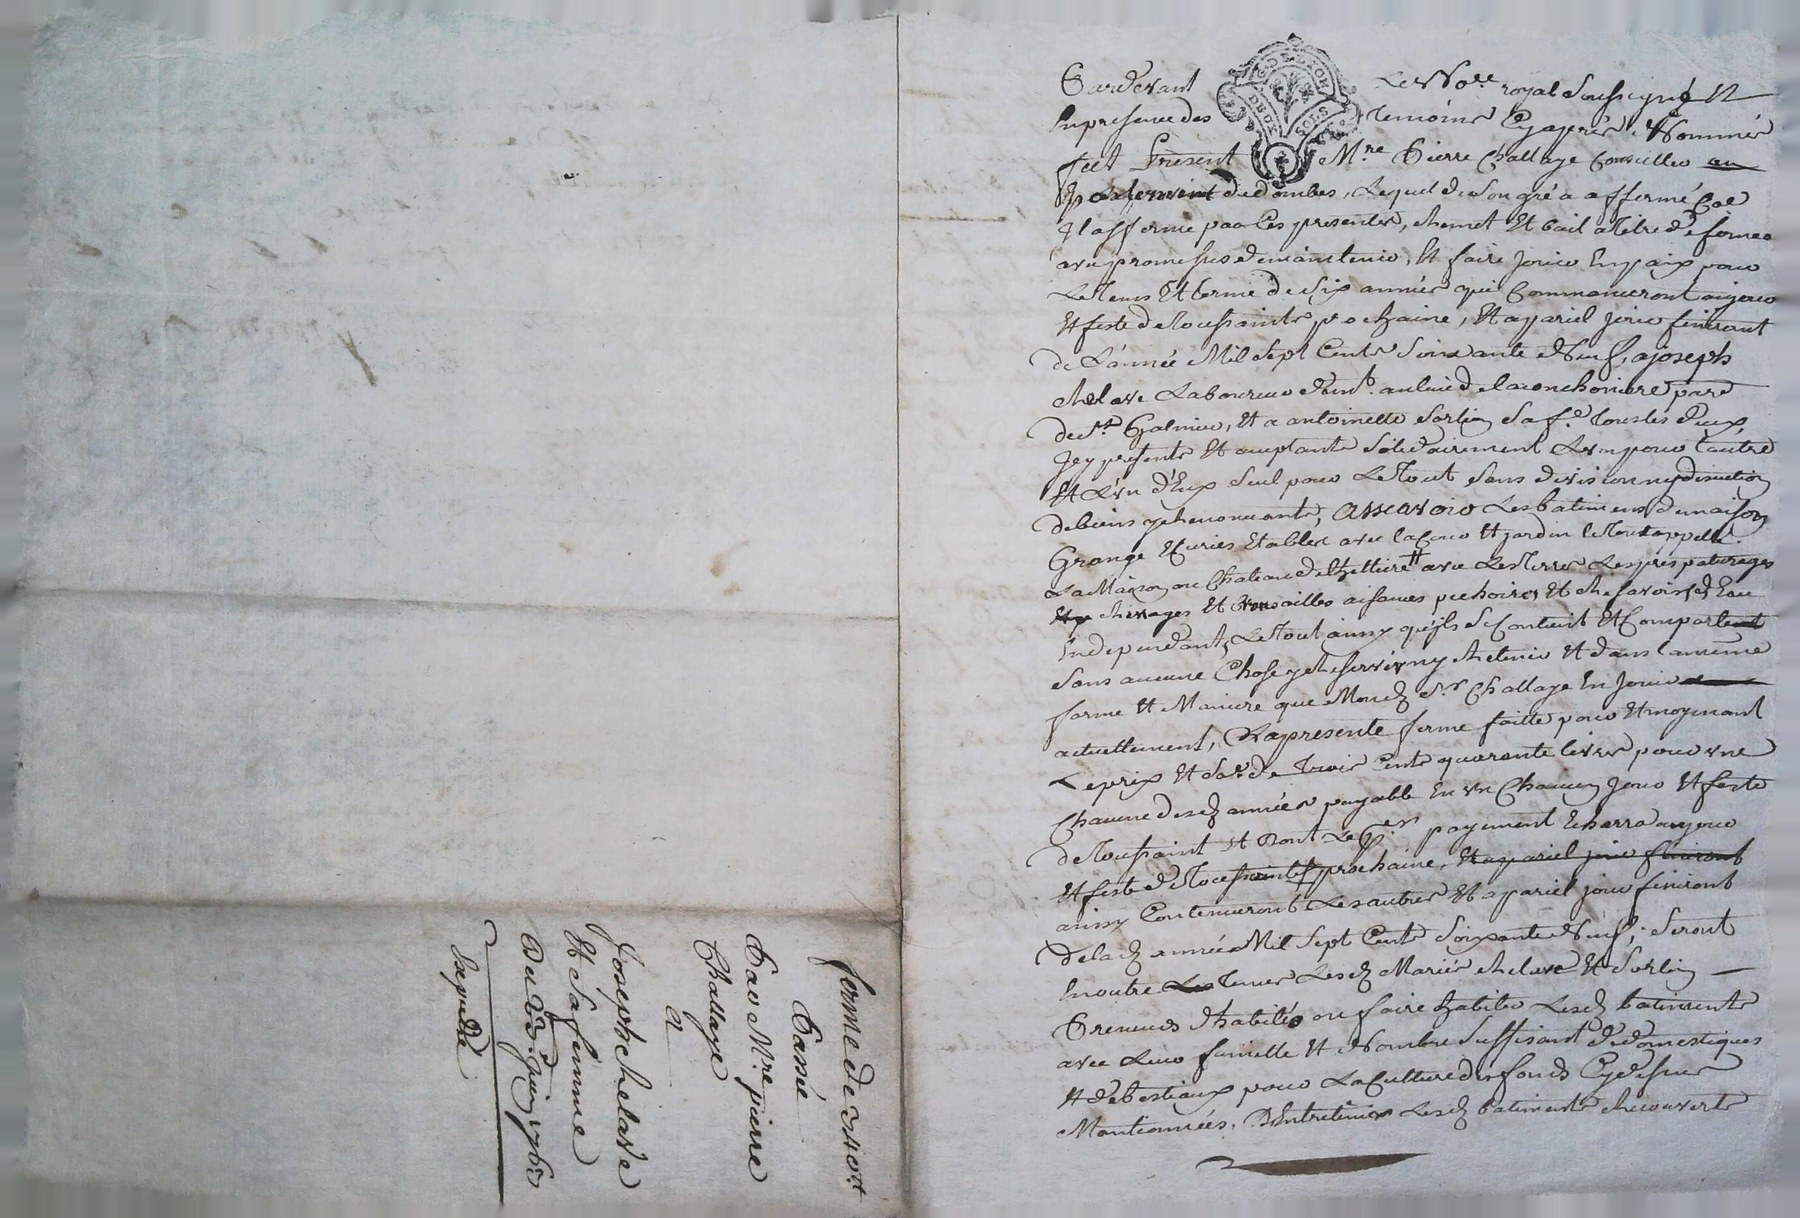 ferme de 340#
Passée
Par Mre pierre
Challaye
a
Joseph chelave
Et Sa femme
Du 23e juin 1763
Expedié
GEN DE LYON
DEUX SOLS
Pardevant Le No.re royal Soussigné Et
En presence des Temoins Cy apres Nommés
fut Present Mre Pierre Challaye Conseiller au
Parlement de dombes, Lequel de Son gré a affermé Comme
Il afferme par Ces presentes, remet Et bail a Titre de ferme
avec promesses de maintenir, Et faire Jouir En paix pour
Le Tems Et terme de Six années qui Commanceront au jour
Et feste de Toussaints prochaine, Et a pareil Jour finiront
de L'année Mil Sept Cents Soixante Neuf, a joseph
chelave Laboureur au lieu de la conchoniere par.e
de St Galmier, Et a antoinette Sorlin Sa fe. Tous les Deux
Jcy presents Et acceptants Solidairement L'un pour L'autre
Et L'un d'Eux Seul pour Le Tout Sans division ny discution
de biens y renonceants, Assavoir Les batiments de maison
Grange Ecuries Etables avec la Cour Et jardin le Tout appellé
La Maison ou Chateau de # avec Les Terres Les prés paturages
chevages Et aisances pechoires Et reservoirs d'Eau
Independants, Le Tout ainsy qu'ils Se Contient Et Comportent
Sans aucune Chose y reserver ny retenir Et dans la même
forme Et Maniere que Mond. Sr Challaye En Jouit
actuellement, La presente ferme faitte pour Et moyenant
Le prix Et So.e de Trois Cents quarante livres pour une
Chacune desd. années payable En un Chacun Jour Et feste
de Toussaint Et Dont Le P.er payement Echerra au jour
Et feste de Toussaints prochaine, Et a pareil jour finiront
ainsy Continueront Les autres Et a pareil jour finiront
De lad. année Mil Sept Cents Soixante Neuf; Seront
En outre Tenus Lesd. Mariés chelave Et Sorlin
Preneurs d'habiter ou faire habiter Lesd. batiments
avec Leur famille Et Nombre Suffisant De domestiques
Et de bestiaux pour La Culture des fonds Cy dessus
Mantionnés. D'Entretenir Lesd. batiments recouverts